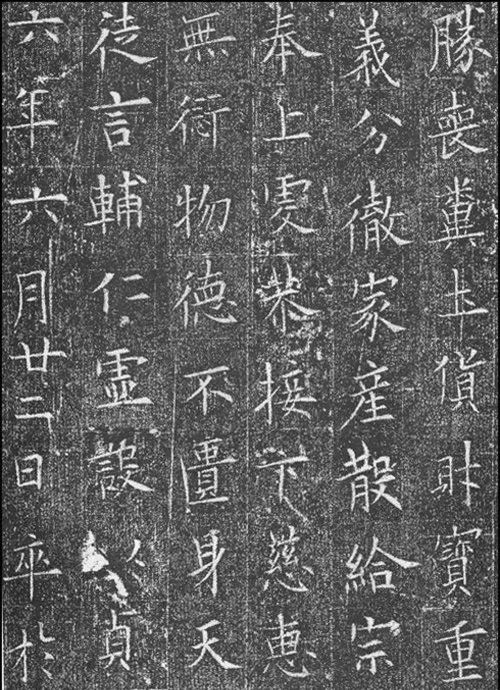 勝喪糞土貨財寶重
義分徹家産散給宗
奉上虔恭接下慈惠
無物德不匱身夭
徒言輔仁虛設以貞
六年六月廿二日卒於